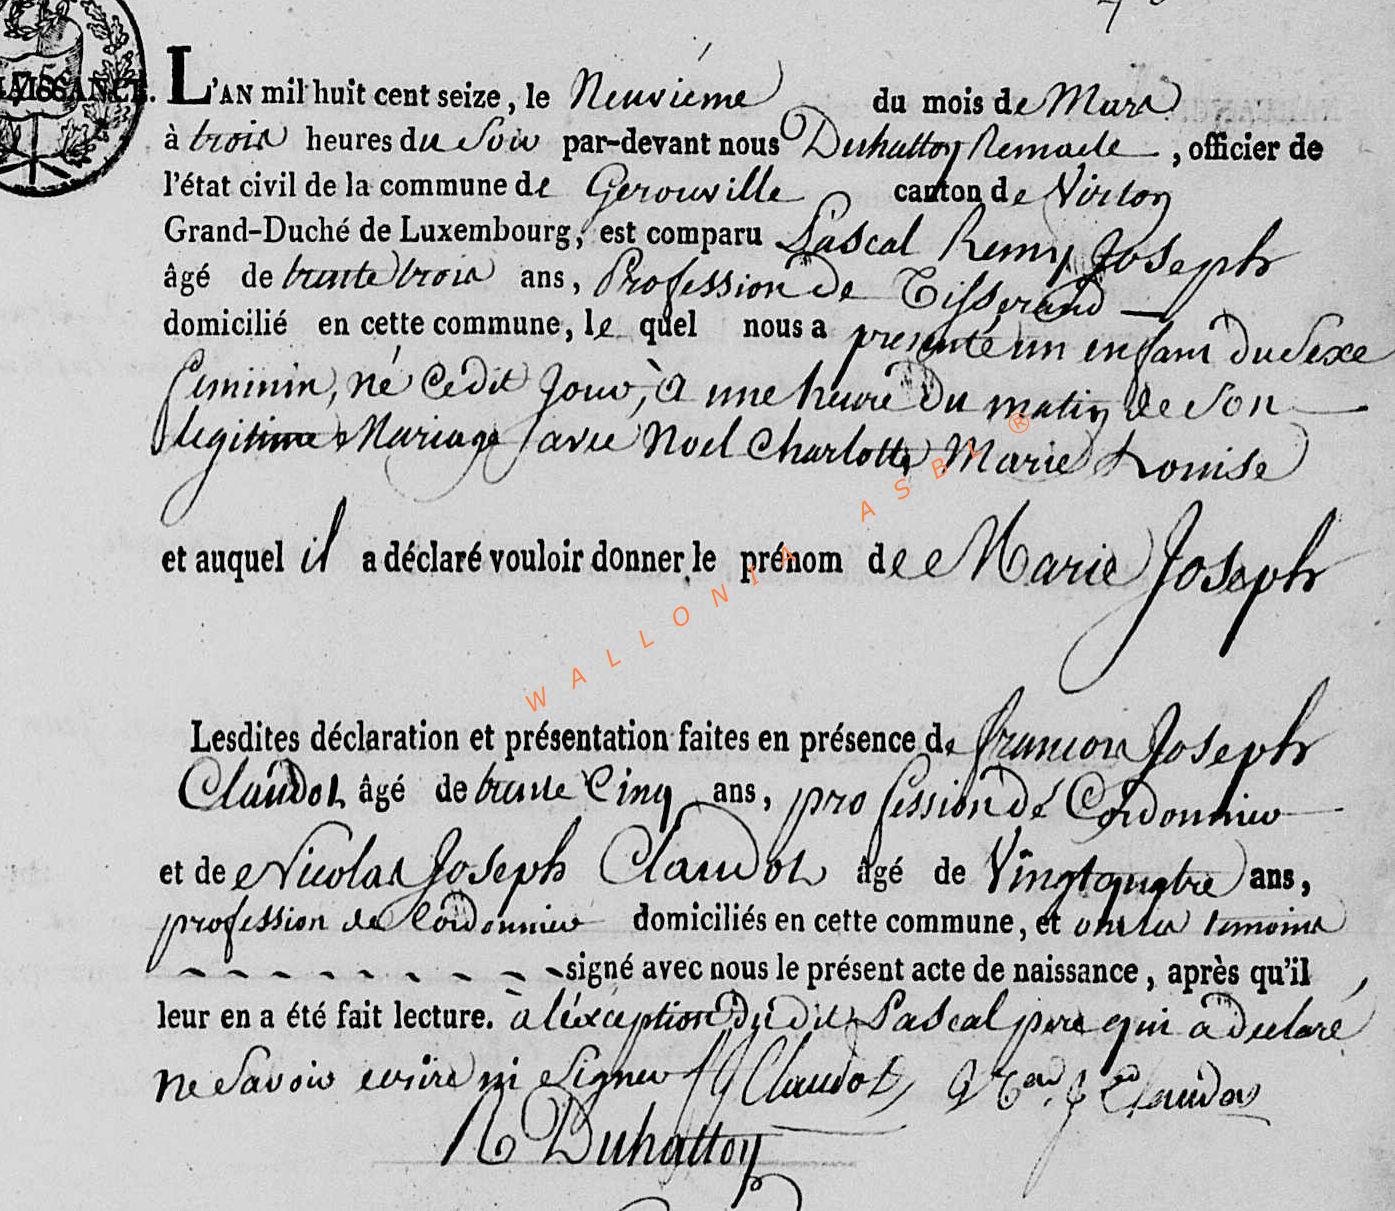 NAISSANCE.
L'AN mil huit cent seize, le Neuvième du mois de Mars
à trois heures du Soir par-devant nous Duhattoy Remacle, officier de
l'état civil de la commune de Gerouville canton de Virton
Grand-Duché de Luxembourg, est comparu Pascal Remy Joseph
âgé de trente trois ans, Profession de Tisserand
domicilié en cette commune, le quel nous a presenté un enfant du Sexe
feminin, né cedit Jour, à une heure du matin de Son
legitime Mariage avec Noel Charlotte Marie Louise
et auquel il a déclaré vouloir donner le prénom de Marie Joseph
Lesdites déclaration et présentation faites en présence de francois Joseph
Claudot âgé de trente Cinq ans, profession de Cordonnier
et de Nicolas Joseph Claudot âgé de Vingt quatre ans,
profession de Cordonnier domiciliés en cette commune, et ont les temoins
signé avec nous le présent acte de naissance, après qu'il
leur en a été fait lecture. à l'éxception du dit Pascal pere qui a declaré
ne Savoir ecrire ni Signer fJ Claudot
N Duhattoy
WALLONIA ASBL ®